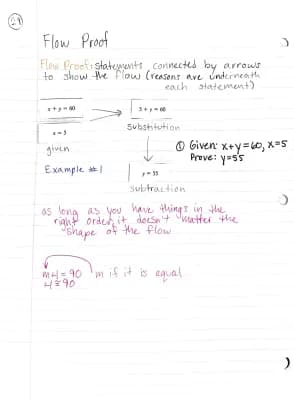 Flow Proof
Flow Proof: statements connected by arrows
to show the flow (reasons are underneath
each statement)
x + y = 60
5 + y = 60
substitution
x = 5
given
① Given: x+y=60, x=5
Prove: y=55
Example #1
y = 55
subtraction
as long as you have things in the
right order, it doesn't matter the
"shape" of the flow
m∠ = 90
m if it is equal
∠ ≅ 90